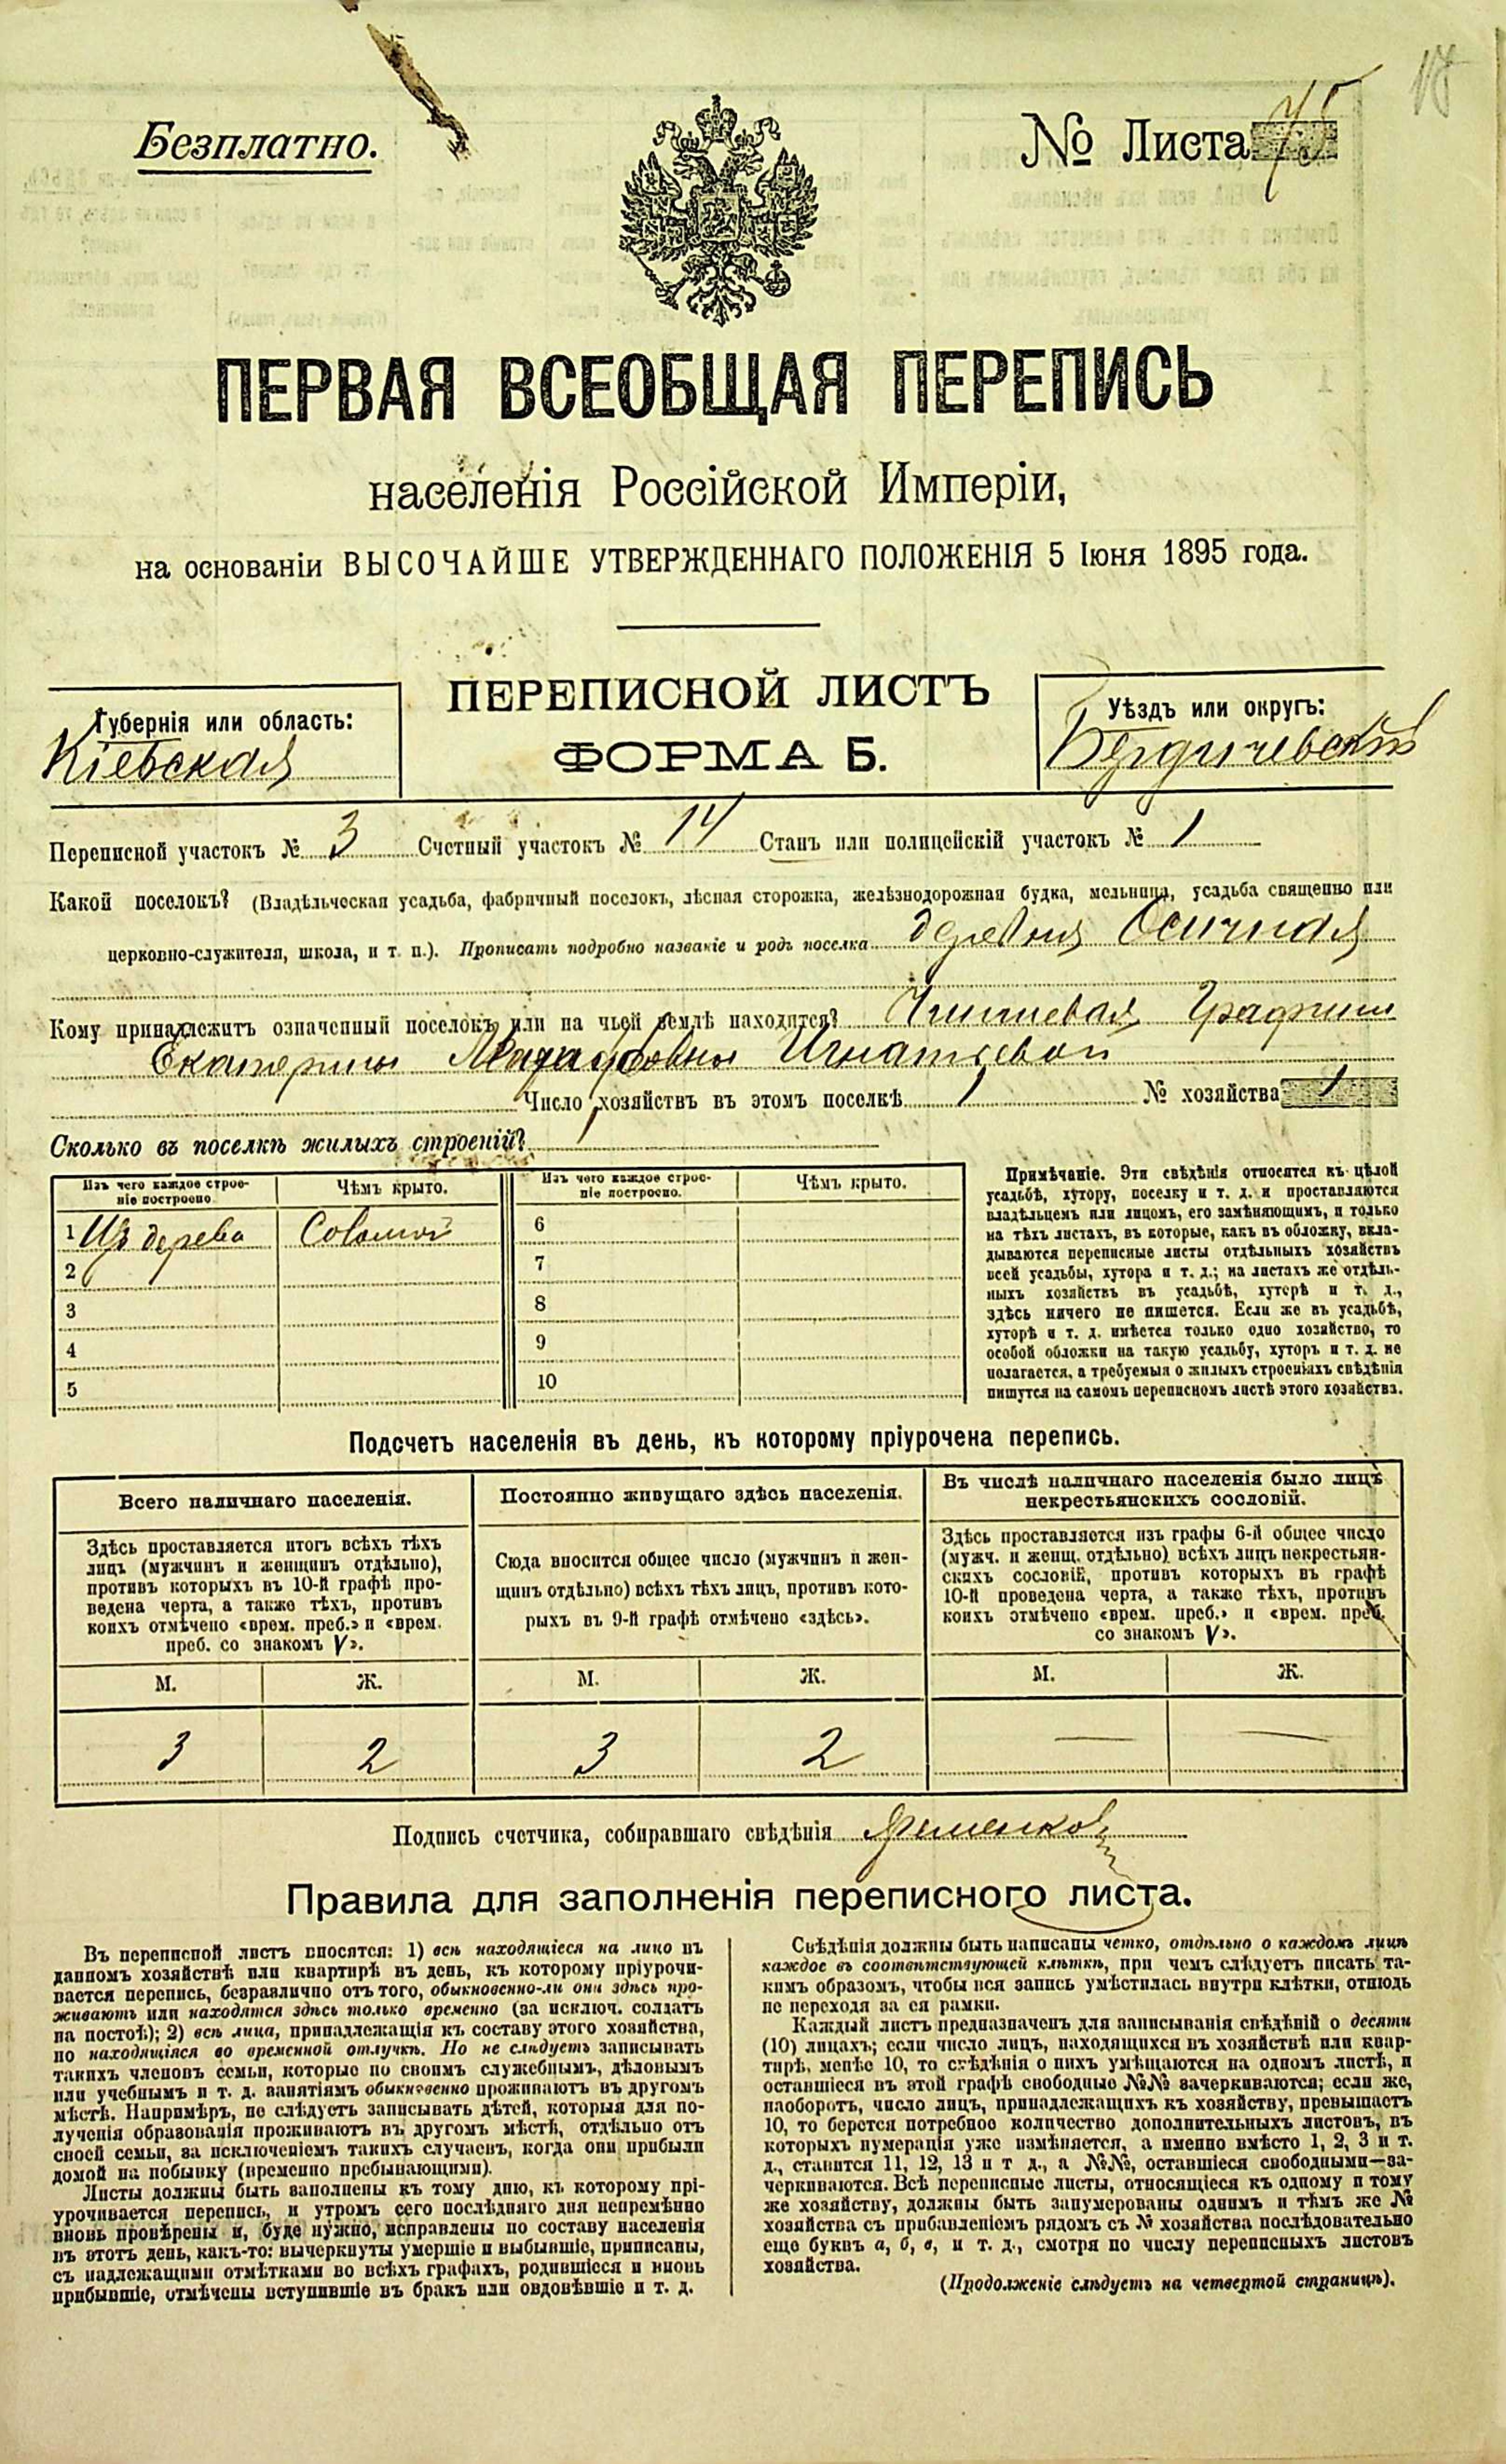 18
Безплатно.
№ Листа 75
ПЕРВАЯ ВСЕОБЩАЯ ПЕРЕПИСЬ
населенія Россійской Имперіи,
на основаніи ВЫСОЧАЙШЕ УТВЕРЖДЕННАГО ПОЛОЖЕНІЯ 5 Іюня 1895 года.
ПЕРЕПИСНОЙ ЛИСТЪ
ФОРМА Б.
Губернія или область:
Кіевская
Уѣздъ или округъ:
Бердичевскій
Переписной участокъ № 3 Счетный участокъ № 14 Станъ или полицейскій участокъ № 1
Какой поселокъ? (Владѣльческая усадьба, фабричный поселокъ, лѣсная сторожка, желѣзнодорожная будка, мельница, усадьба священно или
церковно-служителя, школа, и т. п.). Прописать подробно названіе и родъ поселка деревня Осичная
Кому принадлежитъ означенный поселокъ или на чьей землѣ находится? Графини
Екатерины Игнатьевой
Число хозяйствъ въ этомъ поселкѣ 1 № хозяйства 1
Сколько въ поселкѣ жилыхъ строеній? 1
Изъ чего каждое строе-
ніе построено.
Чѣмъ крыто.
Изъ чего каждое строе-
ніе построено.
Чѣмъ крыто.
1 Изъ дерева Соломой
2
3
4
5
6
7
8
9
10
Примѣчаніе. Эти свѣдѣнія относятся къ цѣлой
усадьбѣ, хутору, поселку и т. д. и проставляются
владѣльцемъ или лицомъ, его замѣняющимъ, и только
на тѣхъ листахъ, въ которые, какъ въ обложку, вкла-
дываются переписные листы отдѣльныхъ хозяйствъ
всей усадьбы, хутора и т. д.; на листахъ же отдѣль-
ныхъ хозяйствъ въ усадьбѣ, хуторѣ и т. д.,
здѣсь ничего не пишется. Если же въ усадьбѣ,
хуторѣ и т. д. имѣется только одно хозяйство, то
особой обложки на такую усадьбу, хуторъ и т. д. не
полагается, а требуемыя о жилыхъ строеніяхъ свѣдѣнія
пишутся на самомъ переписномъ листѣ этого хозяйства.
Подсчетъ населенія въ день, къ которому пріурочена перепись.
Всего наличнаго населенія.
Здѣсь проставляется итогъ всѣхъ тѣхъ
лицъ (мужчинъ и женщинъ отдѣльно),
противъ которыхъ въ 10-й графѣ про-
ведена черта, а также тѣхъ, противъ
коихъ отмѣчено «врем. преб.» и «врем.
преб. со знакомъ V».
М. Ж.
3 2
Постоянно живущаго здѣсь населенія.
Сюда вносится общее число (мужчинъ и жен-
щинъ отдѣльно) всѣхъ тѣхъ лицъ, противъ кото-
рыхъ въ 9-й графѣ отмѣчено «здѣсь».
М. Ж.
3 2
Въ числѣ наличнаго населенія было лицъ
некрестьянскихъ сословій.
Здѣсь проставляется изъ графы 6-й общее число
(мужч. и женщ. отдѣльно) всѣхъ лицъ некрестьян-
скихъ сословій, противъ которыхъ въ графѣ
10-й проведена черта, а также тѣхъ, противъ
коихъ отмѣчено «врем. преб.» и «врем. преб.
со знакомъ V».
М. Ж.
— —
Подпись счетчика, собиравшаго свѣдѣнія
Правила для заполненія переписного листа.
Въ переписной листъ вносятся: 1) всѣ находящіеся на лицо въ
данномъ хозяйствѣ или квартирѣ въ день, къ которому пріурочи-
вается перепись, безразлично отъ того, обыкновенно-ли они здѣсь про-
живаютъ или находятся здѣсь только временно (за исключ. солдатъ
на постоѣ); 2) всѣ лица, принадлежащія къ составу этого хозяйства,
но находящіяся во временной отлучкѣ. Но не слѣдуетъ записывать
такихъ членовъ семьи, которые по своимъ служебнымъ, дѣловымъ
или учебнымъ и т. д. занятіямъ обыкновенно проживаютъ въ другомъ
мѣстѣ. Напримѣръ, не слѣдуетъ записывать дѣтей, которыя для по-
лученія образованія проживаютъ въ другомъ мѣстѣ, отдѣльно отъ
своей семьи, за исключеніемъ такихъ случаевъ, когда они прибыли
домой на побывку (временно пребывающими).
Листы должны быть заполнены къ тому дню, къ которому прі-
урочивается перепись, и утромъ сего послѣдняго дня непремѣнно
вновь провѣрены и, буде нужно, исправлены по составу населенія
въ этотъ день, какъ-то: вычеркнуты умершіе и выбывшіе, приписаны,
съ надлежащими отмѣтками во всѣхъ графахъ, родившіеся и вновь
прибывшіе, отмѣчены вступившіе въ бракъ или овдовѣвшіе и т. д.
Свѣдѣнія должны быть написаны четко, отдѣльно о каждомъ лицѣ
каждое въ соотвѣтствующей клѣткѣ, при чемъ слѣдуетъ писать та-
кимъ образомъ, чтобы вся запись умѣстилась внутри клѣтки, отнюдь
не переходя за ея рамки.
Каждый листъ предназначенъ для записыванія свѣдѣній о десяти
(10) лицахъ; если число лицъ, находящихся въ хозяйствѣ или квар-
тирѣ, менѣе 10, то свѣдѣнія о нихъ умѣщаются на одномъ листѣ, и
оставшіеся въ этой графѣ свободные №№ зачеркиваются; если же,
наоборотъ, число лицъ, принадлежащихъ къ хозяйству, превышаетъ
10, то берется потребное количество дополнительныхъ листовъ, въ
которыхъ нумерація уже измѣняется, а именно вмѣсто 1, 2, 3 и т.
д., ставится 11, 12, 13 и т д., а №№, оставшіеся свободными—за-
черкиваются. Всѣ переписные листы, относящіеся къ одному и тому
же хозяйству, должны быть занумерованы однимъ и тѣмъ же №
хозяйства съ прибавленіемъ рядомъ съ № хозяйства послѣдовательно
еще буквъ а, б, в, и т. д., смотря по числу переписныхъ листовъ
хозяйства.
(Продолженіе слѣдуетъ на четвертой страницѣ).